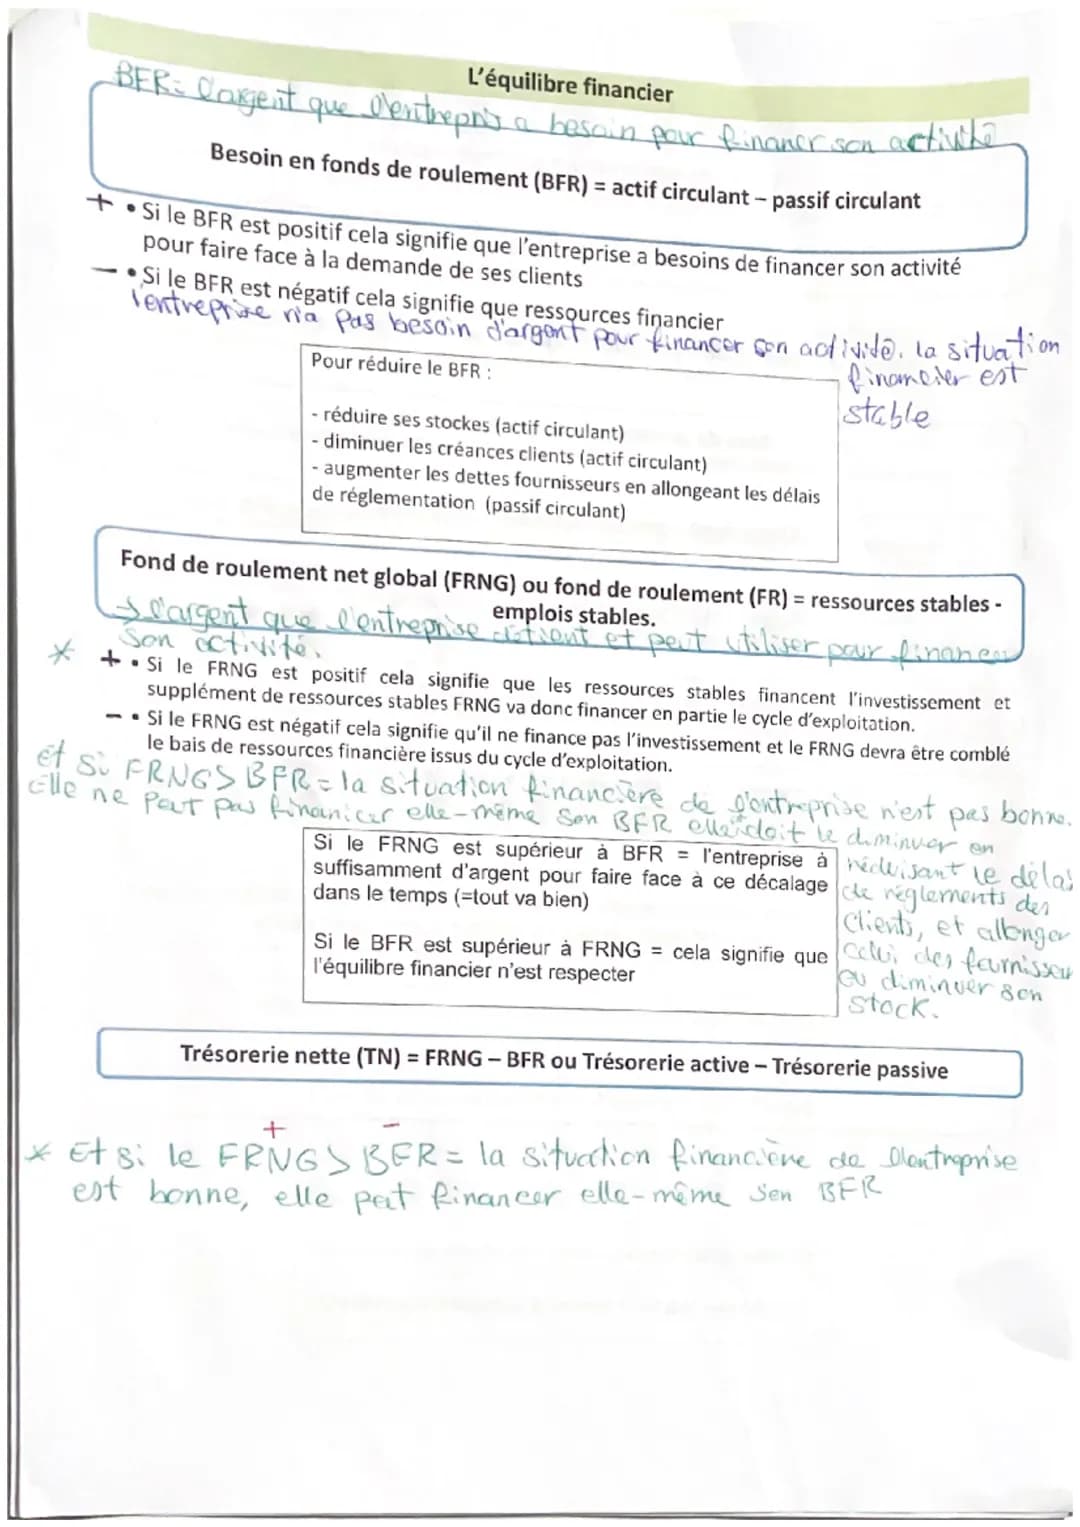 L'équilibre financier
BFR = l'argent que l'entrepris a besoin pour financer son activité
Besoin en fonds de roulement (BFR) = actif circulant – passif circulant
+ • Si le BFR est positif cela signifie que l'entreprise a besoins de financer son activité
pour faire face à la demande de ses clients
– • Si le BFR est négatif cela signifie que ressources financier
l'entreprise n'a pas besoin d'argent pour financer son activité. la situation
financier est
stable
Pour réduire le BFR :
- réduire ses stockes (actif circulant)
- diminuer les créances clients (actif circulant)
- augmenter les dettes fournisseurs en allongeant les délais
de réglementation (passif circulant)
Fond de roulement net global (FRNG) ou fond de roulement (FR) = ressources stables -
emplois stables.
→ l'argent que l'entreprise détient et peut utiliser pour financer
son activité.
* + • Si le FRNG est positif cela signifie que les ressources stables financent l'investissement et
supplément de ressources stables FRNG va donc financer en partie le cycle d'exploitation.
– • Si le FRNG est négatif cela signifie qu'il ne finance pas l'investissement et le FRNG devra être comblé
le bais de ressources financière issus du cycle d'exploitation.
et si FRNG > BFR = la situation financière de l'entreprise n'est pas bonne.
Elle ne peut pas financier elle-même son BFR elle doit le diminuer en
réduisant le délai
de règlements des
clients, et allonger
celui des fournisseu
ou diminuer son
stock.
Si le FRNG est supérieur à BFR = l'entreprise à
suffisamment d'argent pour faire face à ce décalage
dans le temps (=tout va bien)
Si le BFR est supérieur à FRNG = cela signifie que
l'équilibre financier n'est respecter
Trésorerie nette (TN) = FRNG – BFR ou Trésorerie active – Trésorerie passive
+ –
* Et si le FRNG > BFR = la situation financière de l'entreprise
est bonne, elle peut financer elle-même son BFR